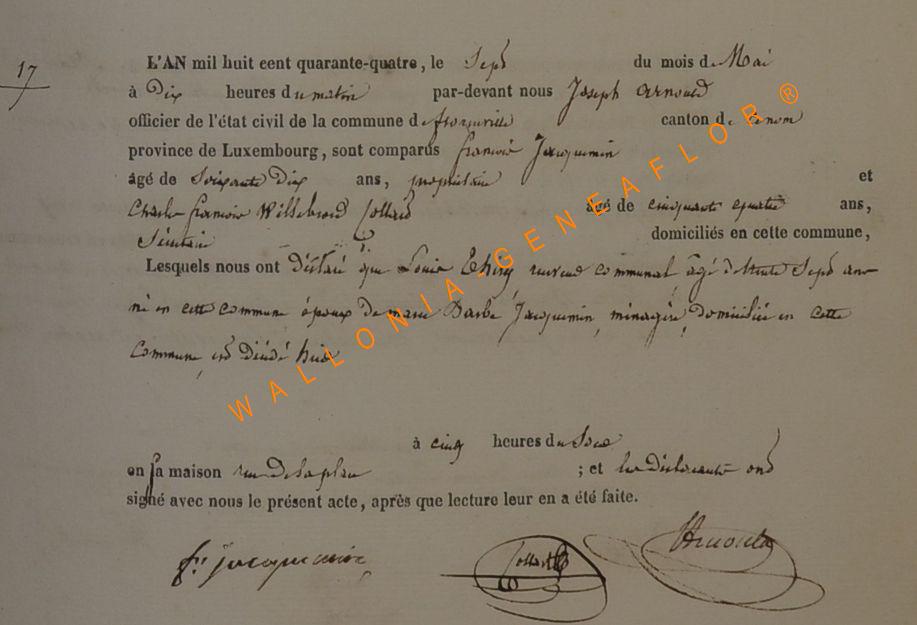 17
L'AN mil huit cent quarante-quatre, le Sept du mois de Mai
à Dix heures du matin par-devant nous Joseph Arnould
officier de l'état civil de la commune de franville canton de
province de Luxembourg, sont comparus françois Jacquemin
âgé de Soixante Dix ans, propriétaire et
Charles françois Willebrord Collard âgé de cinquante quatre ans,
domiciliés en cette commune,
Lesquels nous ont déclaré que Louis Thiry receveur communal âgé de trente Sept ans
né en cette commune époux de marie Barbe Jacquemin, ménagère, domiciliée en cette
commune, est décédé hier
à cinq heures du Soir
en sa maison rue de la place ; et les déclarants ont
signé avec nous le présent acte, après que lecture leur en a été faite.
fr. jacquemin Collard Arnould
WALLONIA-GENEAFLOR ®